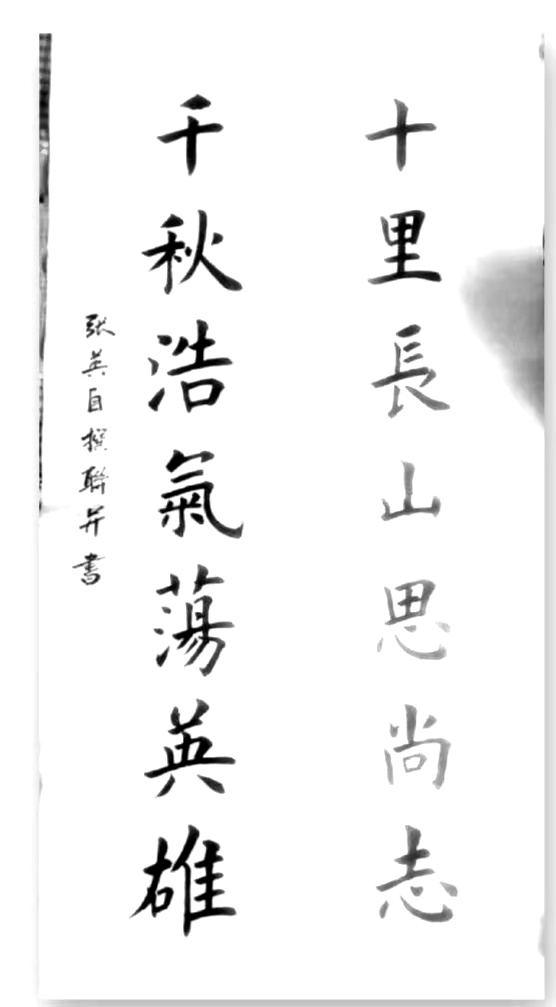 十里長山思尚志
千秋浩氣蕩英雄
張英自撰聯并書